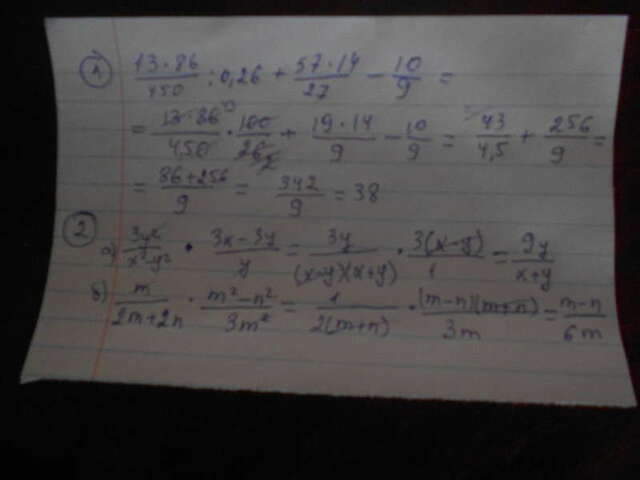 1) 13·86/450 : 0,26 + 57·14/27 - 10/9 =
= 13·86/450 · 100/26 + 19·14/9 - 10/9 = 43/4,5 + 256/9 =
= 86+256/9 = 342/9 = 38
2)
а) 3y²/x²-y² · 3x-3y/y = 3y/(x-y)(x+y) · 3(x-y)/1 = 9y/x+y
б) m/2m+2n · m²-n²/3m² = 1/2(m+n) · (m-n)(m+n)/3m = m-n/6m